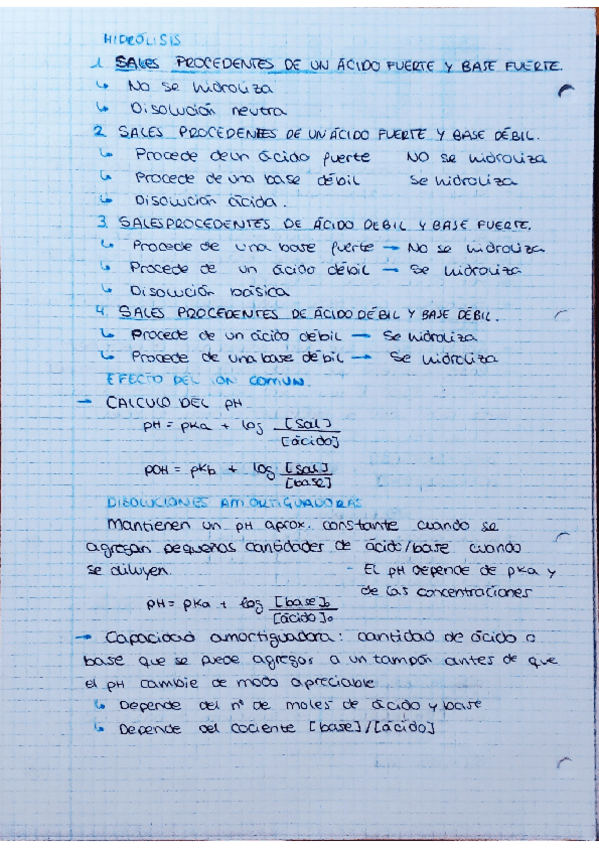 HIDRÓLISIS
1. SALES PROCEDENTES DE UN ÁCIDO FUERTE Y BASE FUERTE.
↳ No se hidroliza
↳ Disolución neutra
2. SALES PROCEDENTES DE UN ÁCIDO FUERTE Y BASE DÉBIL.
↳ Procede de un ácido fuerte NO se hidroliza
↳ Procede de una base débil Se hidroliza
↳ Disolución ácida.
3. SALES PROCEDENTES DE ÁCIDO DEBIL Y BASE FUERTE.
↳ Procede de una base fuerte → No se hidroliza
↳ Procede de un ácido débil → Se hidroliza
↳ Disolución básica
4. SALES PROCEDENTES DE ÁCIDO DÉBIL Y BASE DÉBIL.
↳ Procede de un ácido débil → Se hidroliza
↳ Procede de una base débil → Se hidroliza
EFECTO DEL ION COMUN.
→ CALCULO DEL pH
pH = pKa + log [Sal] / [ácido]
pOH = pKb + log [Sal] / [base]
DISOLUCIONES AMORTIGUADORAS
Mantienen un pH aprox. constante cuando se
agregan pequeñas cantidades de ácido/base cuando
se diluyen. - El pH depende de pKa y
de las concentraciones
pH = pKa + log [base]₀ / [ácido]₀
→ Capacidad amortiguadora: cantidad de ácido o
base que se puede agregar a un tampón antes de que
el pH cambie de modo apreciable
↳ Depende del nº de moles de ácido y base
↳ Depende del cociente [base]/[ácido]